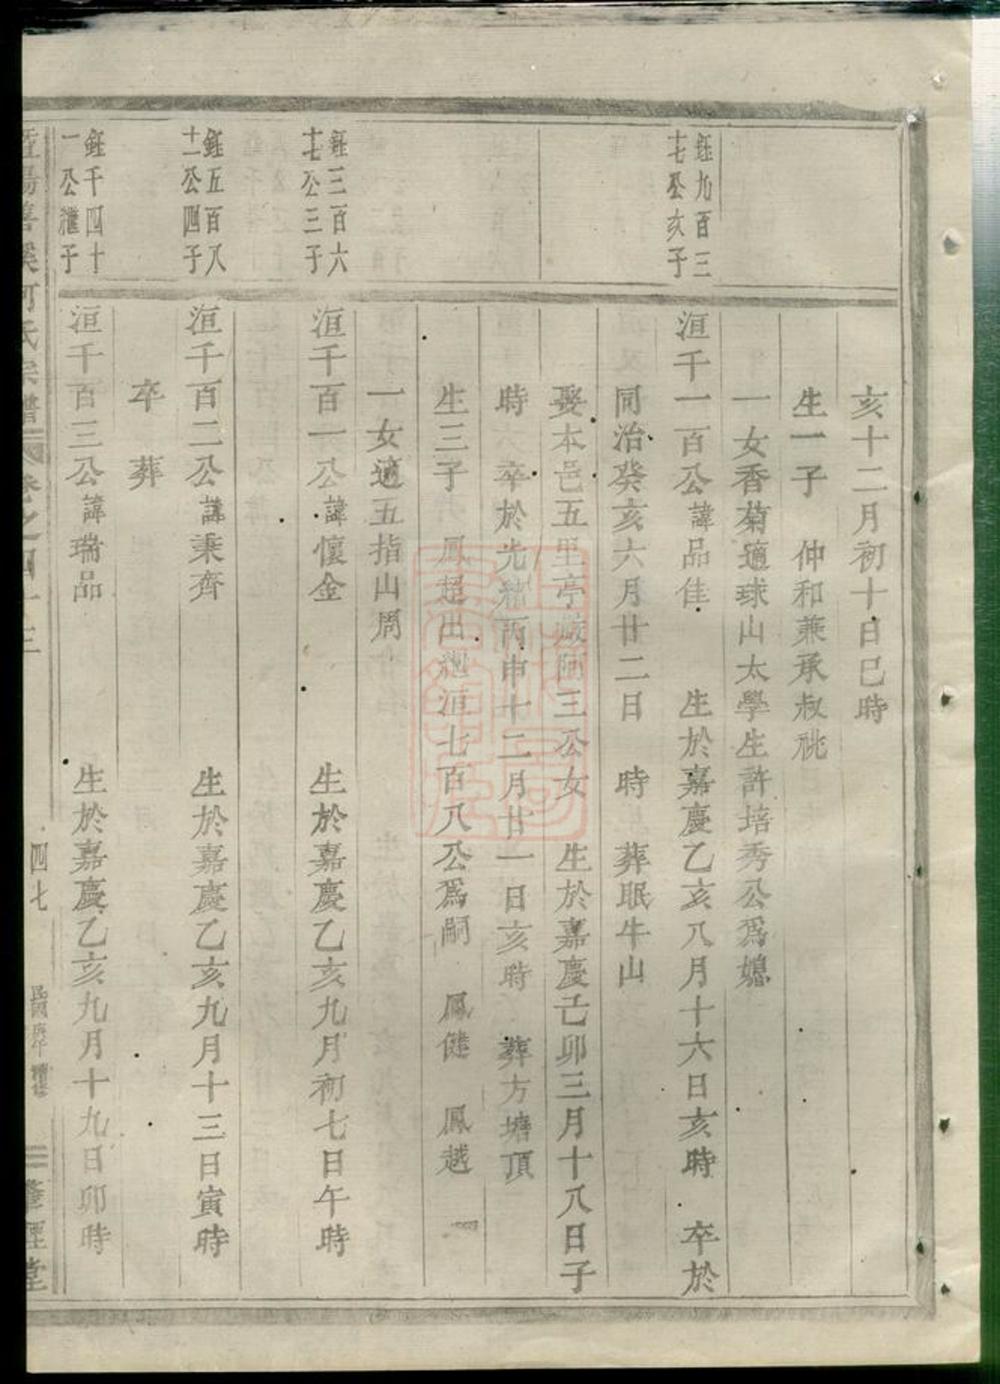 亥十二月初十日巳時
生一子 仲和兼承叔祧
一女香菊適球山太學生許培秀公爲媳
鈺九百三
十七公亥子
洹千一百公諱品佳 生於嘉慶乙亥八月十六日亥時 卒於
同治癸亥六月廿二日 時 葬眠牛山
娶本邑五里亭 三公女 生於嘉慶己卯三月十八日子
時 卒於光緒丙申十二月廿一日亥時 葬方塘頂
生三子 鳳超出繼洹七百八公爲嗣 鳳健 鳳越
一女適五指山周
鈺三百六
十七公三子
洹千百一公諱懷金 生於嘉慶乙亥九月初七日午時
鈺五百八
十二公四子
洹千百二公諱秉齊 生於嘉慶乙亥九月十三日寅時
卒 葬
鈺千四十
一公繼子
洹千百三公諱瑞品 生於嘉慶乙亥九月十九日卯時
暨陽 溪何氏宗譜 卷之四十三 四七 肇經堂